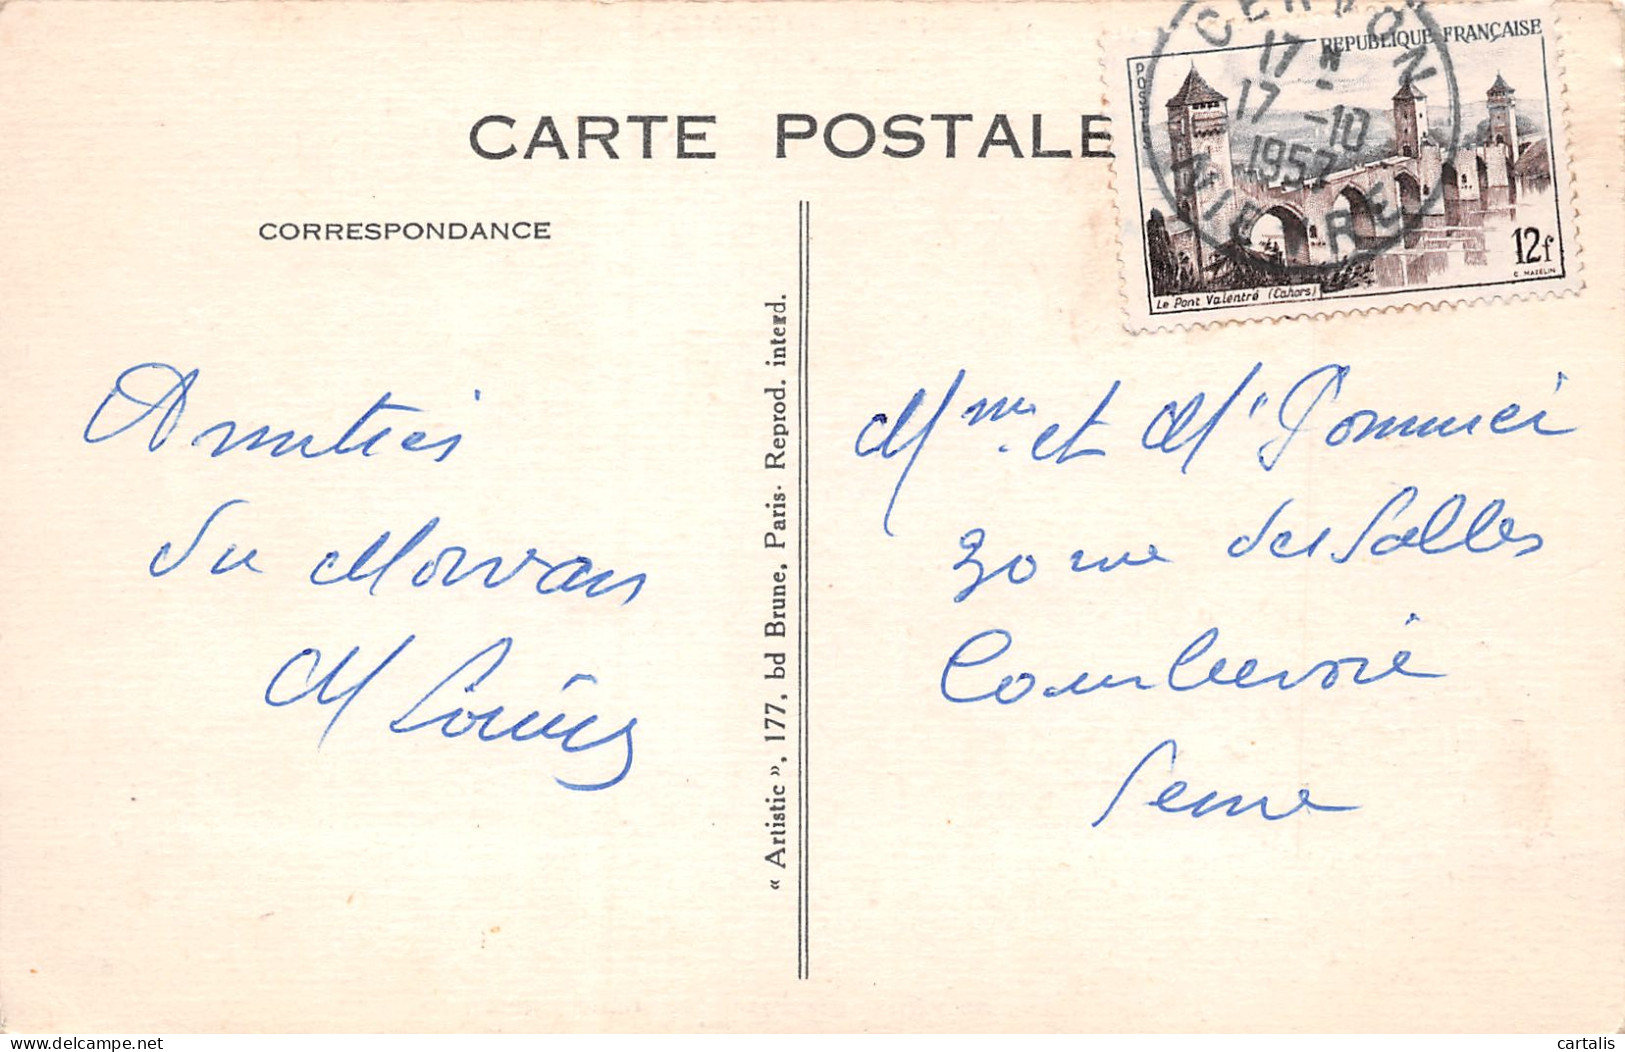 CARTE POSTALE
CORRESPONDANCE
Amitiés
du Morvan
M
« Artistic », 177, bd Brune, Paris. Reprod. interd.
CERVON
17 H
17 -10
1957
NIEVRE
REPUBLIQUE FRANÇAISE
POSTES
12f
C. MAZELIN
Le Pont Valentré (Cahors)
Mme et Mr
30 rue des Salles
Courbevoie
Seine
delcampe.net
cartalis